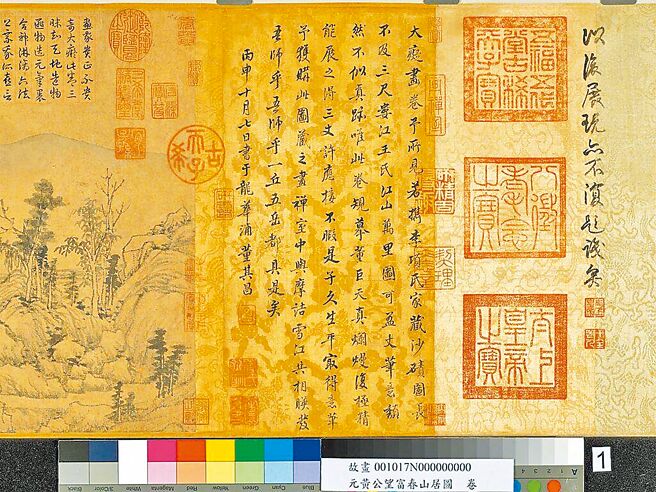 以後展玩亦不復題識矣
五福五代
堂古稀
天子寶
八徵
耄念
之寶
太上
皇帝
之寶
大癡畫卷予所見若檇李項氏家藏沙磧圖長
不及三尺婁江王氏江山萬里圖可盈丈筆意頹
然不似真跡唯此卷規摹董巨天真爛熳復極精
能展之得三丈許應接不暇是子久生平最得意筆
予獲購此圖藏之畫禪室中與摩詰雪江共相映發
吾師乎吾師乎一丘五岳都具是矣
丙申十月七日書于龍華浦董其昌
古希天子
畫家貴正不貴
奇大癡此
天地生物
元氣
淋漓六法
故畫 001017N000000000
元黃公望富春山居圖 卷
1